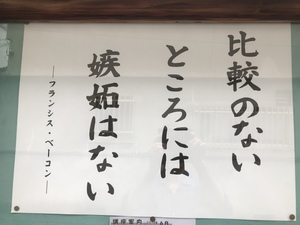 比較のない
ところには
嫉妬はない
―フランシス・ベーコン―